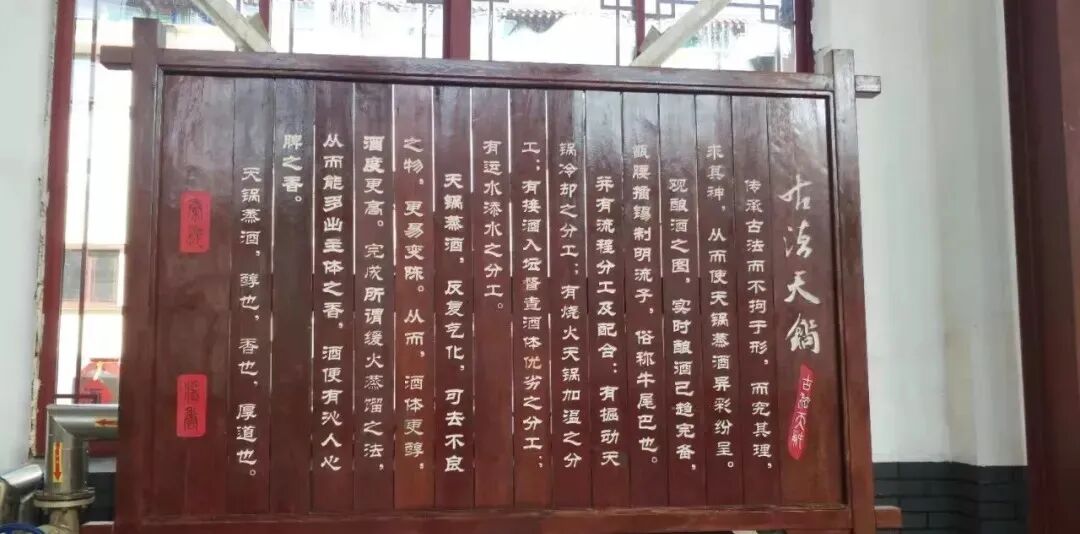 古法天锅
传承古法而不拘于形，而究其理，
求其神，从而使天锅蒸酒异彩纷呈。
观酿酒之图，实时酿酒已趋完备，
甑腰插锡制明流子，俗称牛尾巴也。
并有流程分工及配合：有搅动天
锅冷却之分工；有烧火天锅加温之分
工；有接酒入坛督查酒体优劣之分工；
有运水添水之分工。
天锅蒸酒，反复气化，可去不良
之物，更易变陈。从而，酒体更醇，
酒度更高。完成所谓缓火蒸馏之法，
从而能多出主体之香，酒便有沁人心
脾之香。
天锅蒸酒，醇也，香也，厚道也。